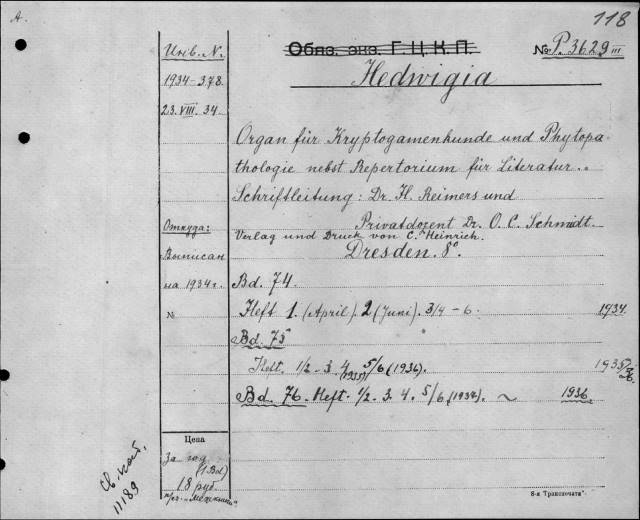 A.
118
Инв. N.
Обяз. экз. Г.Ц.К.П.
№ P.3629 III
Hedwigia
1934-378
23.VIII.34.
Organ für Kryptogamenkunde und Phytopa-
thologie nebst Repertorium für Literatur..
Schriftleitung: Dr. H. Reimers und
Privatdozent Dr. O. C. Schmidt.
Verlag und Druck von C. Heinrich.
Dresden. 8°.
Откуда:
Выписан
на 1934 г.
№
Bd. 74
Heft 1. (April). 2 (Juni). 3/4-6. 1934.
Bd. 75
Heft. 1/2-3. 4 (1935) 5/6 (1936). 1935/36.
Bd. 76 - Heft. 1/2-3. 4. 5/6. (1937). ~ 1936.
Цена
За год
(1 Bd)
18 руб.
Св. кат.
11189
8-я "Транспечати".